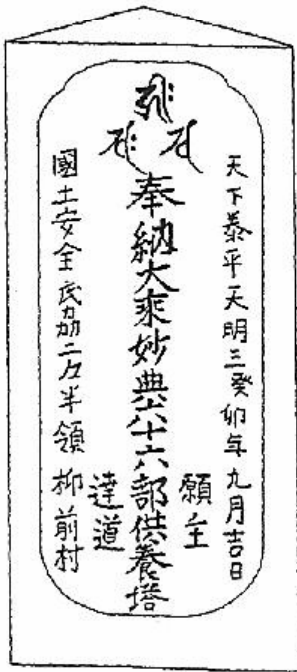 天下泰平天明三癸卯年九月吉日
願主
奉納大乗妙典六十六部供養塔
達道
國土安全 二 半領 柳前村